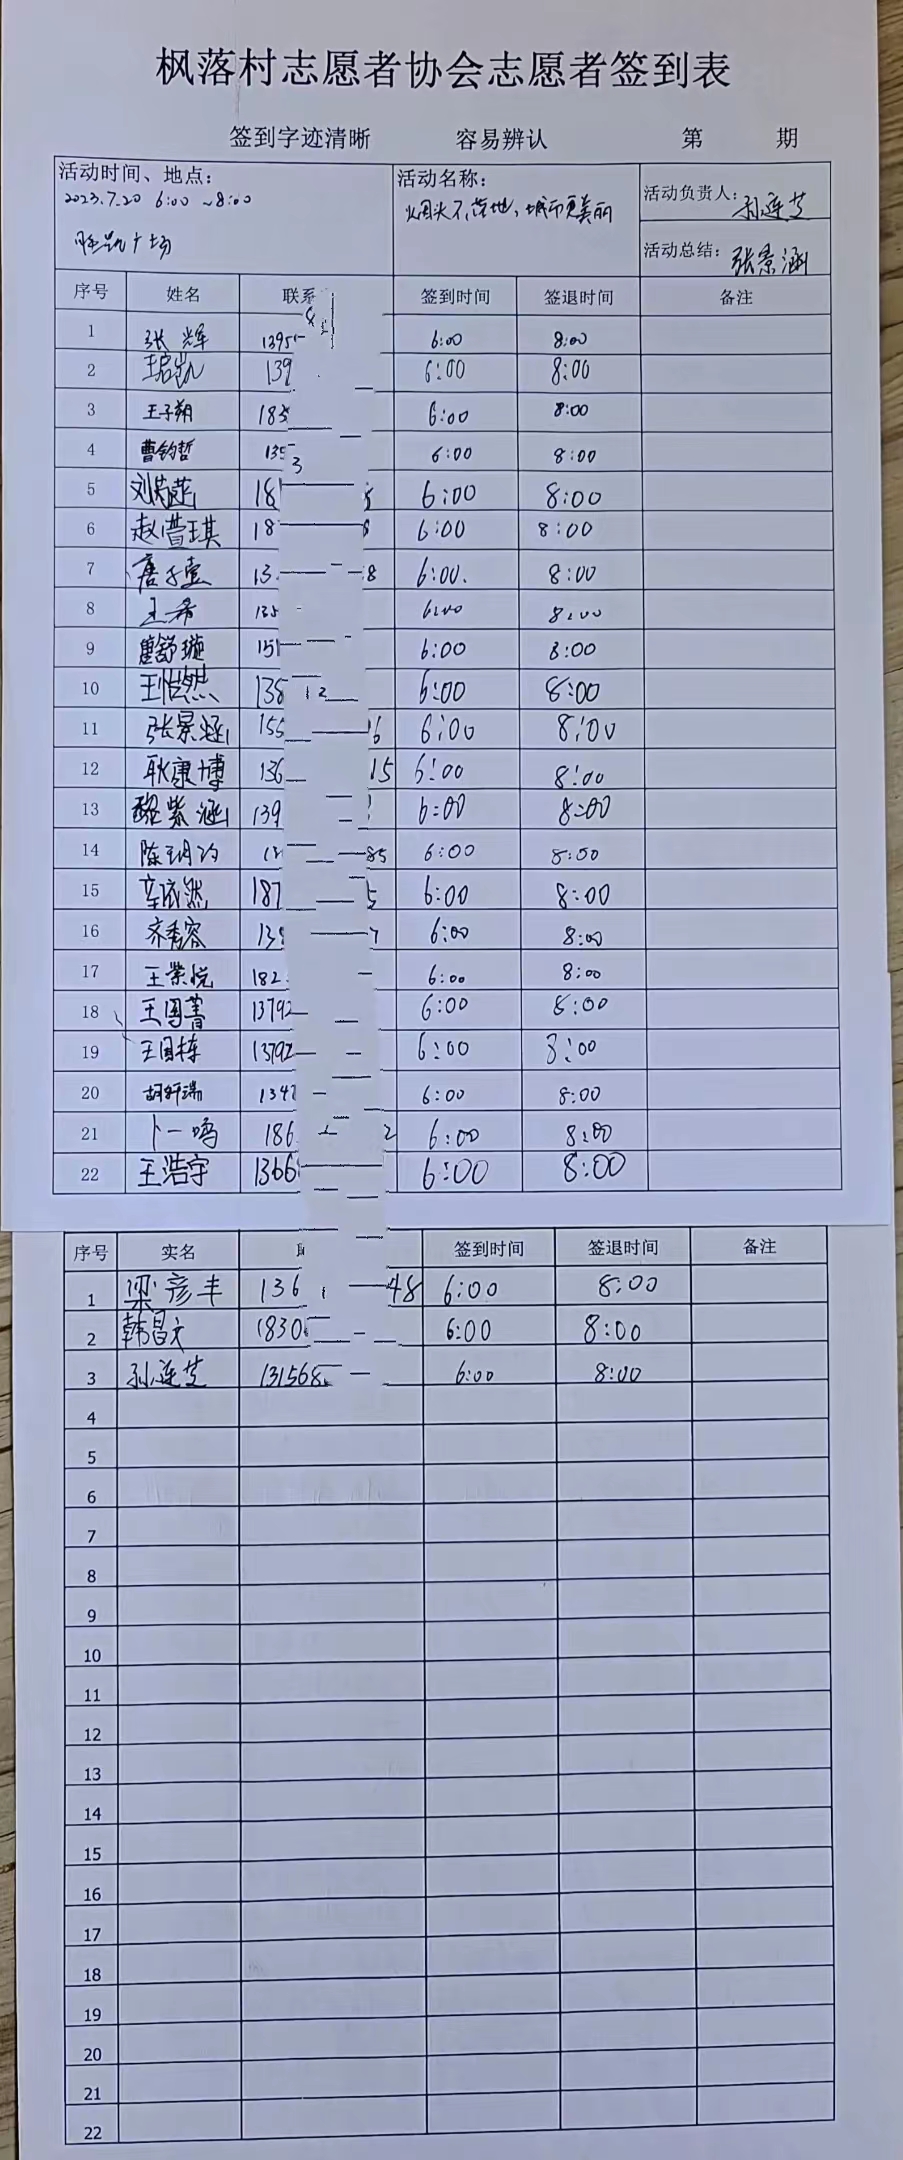 枫落村志愿者协会志愿者签到表
签到字迹清晰 容易辨认 第 期
活动时间、地点: 活动名称: 活动负责人: 孙连芝
2023.7.20 6:00 ~8:00 烟头不落地、城市更美丽
旺凯广场 活动总结: 张景涵
序号 姓名 联系 签到时间 签退时间 备注
1 张辉 1395 6:00 8:00
2 139 6:00 8:00
3 王子朔 183 6:00 8:00
4 曹钧哲 135 3 6:00 8:00
5 181 6:00 8:00
6 赵萱琪 18 8 6:00 8:00
7 唐子壹 13 8 6:00. 8:00
8 王希 135 6:00 8:00
9 唐舒璇 151 6:00 8:00
10 王恺然 138 12 6:00 8:00
11 张景涵 155 6 6:00 8:00
12 耿康博 136 15 6:00 8:00
13 黎紫涵 139 6:00 8:00
14 陈玥 85 6:00 8:00
15 辛依然 187 5 6:00 8:00
16 齐秀容 138 7 6:00 8:00
17 王荣悦 182 6:00 8:00
18 王国菁 13792 6:00 8:00
19 王国栋 13792 6:00 8:00
20 胡轩瑞 134 6:00 8:00
21 卜一鸣 186 2 6:00 8:00
22 王浩宇 1366 6:00 8:00
序号 实名 签到时间 签退时间 备注
1 梁彦丰 136 48 6:00 8:00
2 韩昌文 1830 6:00 8:00
3 孙连芝 131568 6:00 8:00
4
5
6
7
8
9
10
11
12
13
14
15
16
17
18
19
20
21
22